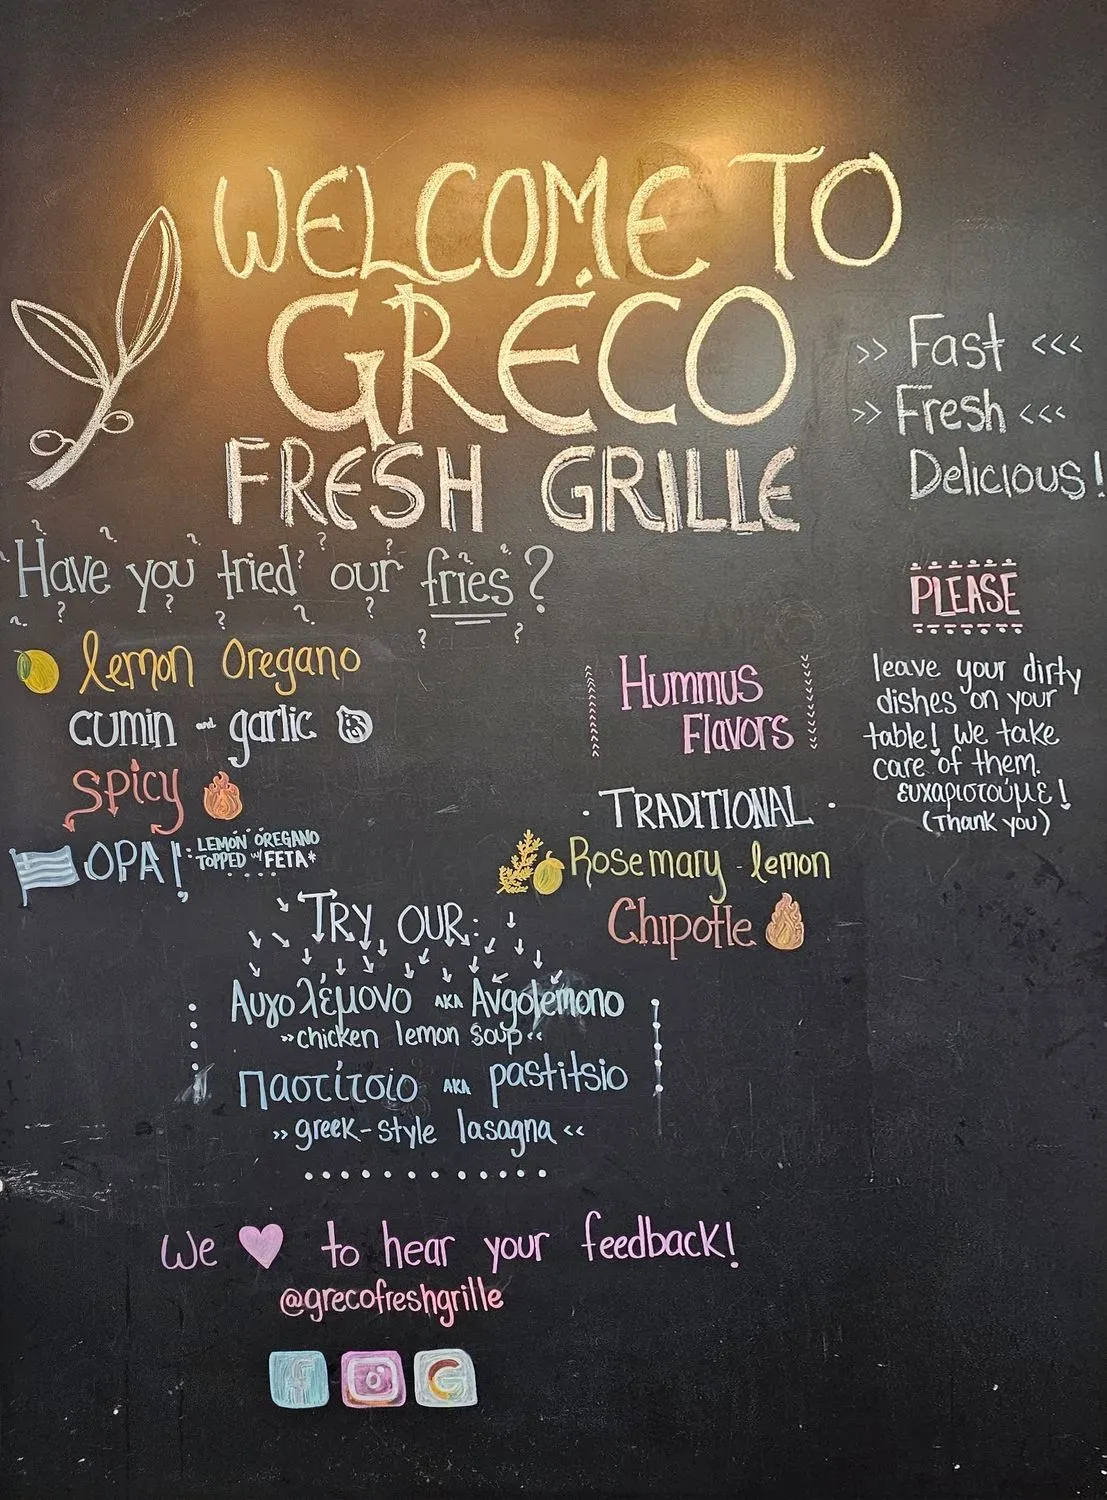 WELCOME TO
GRÉCO
FRESH GRILLE
>> Fast <<<
>> Fresh <<<
Delicious!
Have you tried our fries?
lemon Oregano
cumin and garlic
spicy
OPA! : LEMON OREGANO
TOPPED w/ FETA*
Hummus
Flavors
· TRADITIONAL ·
Rosemary - lemon
Chipotle
PLEASE
leave your dirty
dishes on your
table! We take
care of them.
ευχαριστούμε!
(Thank you)
TRY OUR:
Αυγολέμονο AKA Avgolemono
»chicken lemon soup«
Παστίτσιο AKA pastitsio
>> greek-style lasagna <<
We ♥ to hear your feedback!
@grecofreshgrille
f G